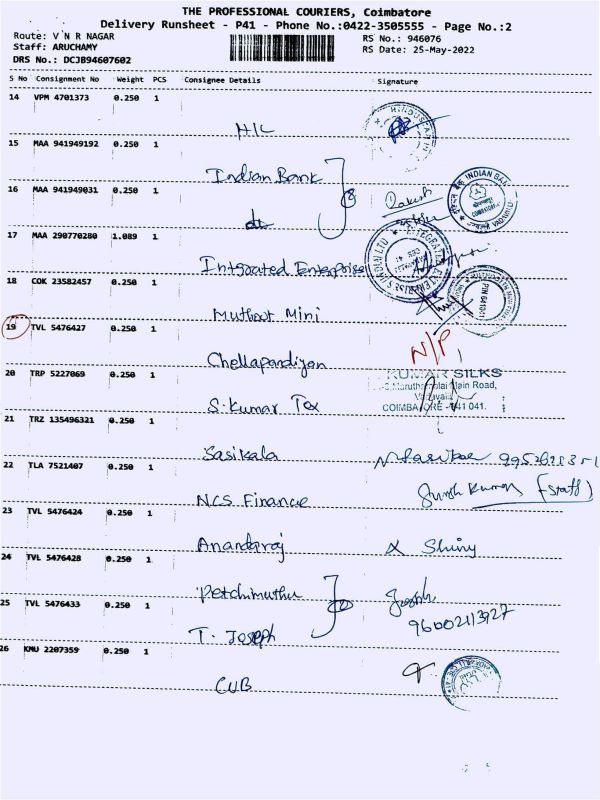 THE PROFESSIONAL COURIERS, Coimbatore
Delivery Runsheet - P41 - Phone No.:0422-3505555 - Page No.:2
Route: V N R NAGAR
RS No.: 946076
Staff: ARUCHAMY
RS Date: 25-May-2022
DRS No.: DCJB94607602
S No Consignment No Weight PCS Consignee Details Signature
14 VPM 4701373 0.250 1
HIL
15 MAA 941949192 0.250 1
Indian Bank
16 MAA 941949031 0.250 1
do
17 MAA 290770280 1.089 1
Intgrated Enterprise
18 COK 23582457 0.250 1
Muthoot Mini
19 TVL 5476427 0.250 1
N/P
Chellapandiyan
20 TRP 5227069 0.250 1
KUMAR SILKS
Main Road,
COIMBATORE - 641 041.
S. Kumar Tex
21 TRZ 135496321 0.250 1
Sasikala
22 TLA 7521407 0.250 1
(Staff)
NCS Finance
23 TVL 5476424 0.250 1
Anandaraj
Shiny
24 TVL 5476428 0.250 1
Petchimuthu
Joseph
25 TVL 5476433 0.250 1
T. Joseph
26 KMU 2207359 0.250 1
CUB